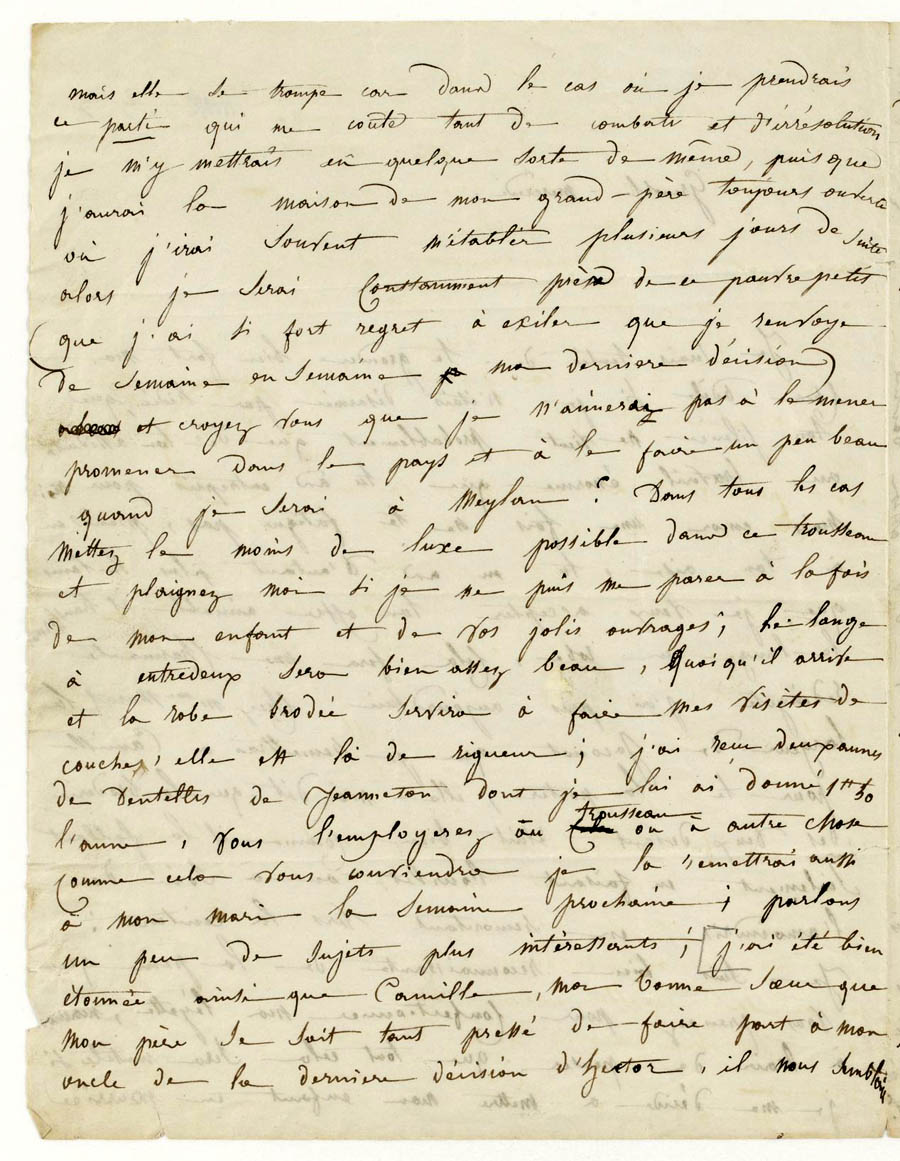 mais elle se trompe car dans le cas où je prendrais
ce parti qui me coute tant de combats et d'irrésolution
je m'y mettrais en quelque sorte de même, puisque
j'aurai la maison de mon grand-père toujours ouverte
où j'irai souvent m'établir plusieurs jours de suite
alors je serai constamment près de ce pauvre petit
(que j'ai si fort regret à exiler que je renvoye
de semaine en semaine ma derniere décision)
et croyez vous que je n'aimerai pas à le mener
promener dans le pays et à le faire un peu beau
quand je serai à Meylan ? Dans tous les cas
mettez le moins de luxe possible dans ce trousseau
et plaignez moi si je ne puis me parer à la fois
de mon enfant et de vos jolis ouvrages ; le lange
à entredeux sera bien assez beau, quoiqu'il arrive
et la robe brodée servira à faire mes visites de
couches, elle est là de rigueur ; j'ai reçu deux aunes
de dentelles de Jeanneton dont je lui ai donné 1tt 50
l'aune, vous l'employerez au trousseau ou à autre chose
comme cela vous conviendra je la remettrai aussi
à mon mari la semaine prochaine ; parlons
un peu de sujets plus intéressants ; j'ai été bien
étonnée ainsi que Camille, ma bonne sœur que
mon père se soit tant pressé de faire part à mon
oncle de la derniere décision d'hector, il nous semblait